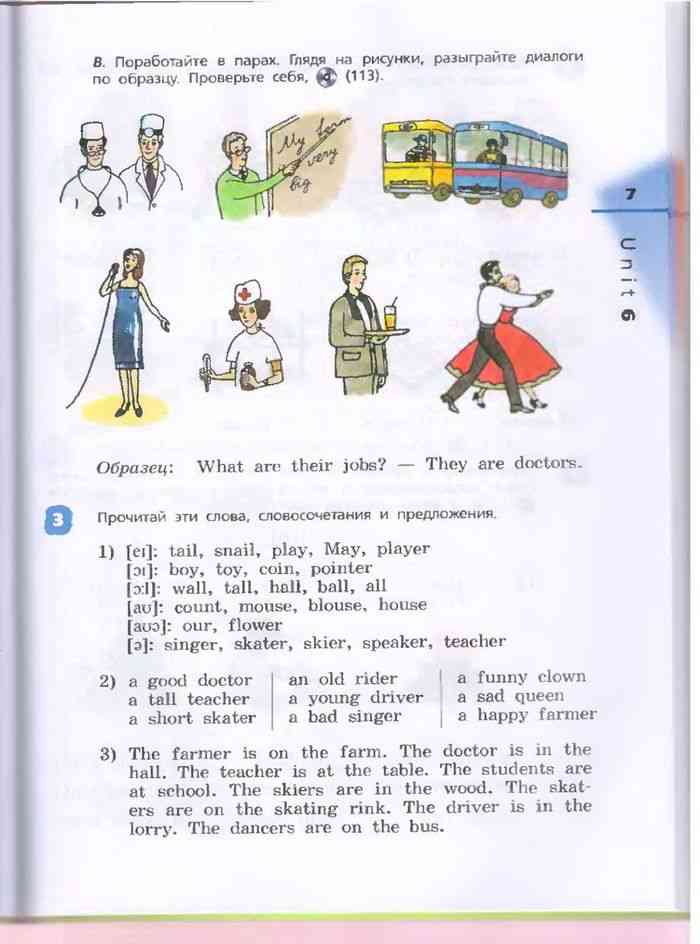 В. Поработайте в парах. Глядя на рисунки, разыграйте диалоги
по образцу. Проверьте себя, (113).
My farm
very
big
7
Unit 6
Образец: What are their jobs? — They are doctors.
3 Прочитай эти слова, словосочетания и предложения.
1) [eɪ]: tail, snail, play, May, player
[ɔɪ]: boy, toy, coin, pointer
[ɔ:l]: wall, tall, hall, ball, all
[aʊ]: count, mouse, blouse, house
[aʊə]: our, flower
[ə]: singer, skater, skier, speaker, teacher
2) a good doctor an old rider a funny clown
a tall teacher a young driver a sad queen
a short skater a bad singer a happy farmer
3) The farmer is on the farm. The doctor is in the
hall. The teacher is at the table. The students are
at school. The skiers are in the wood. The skat-
ers are on the skating rink. The driver is in the
lorry. The dancers are on the bus.